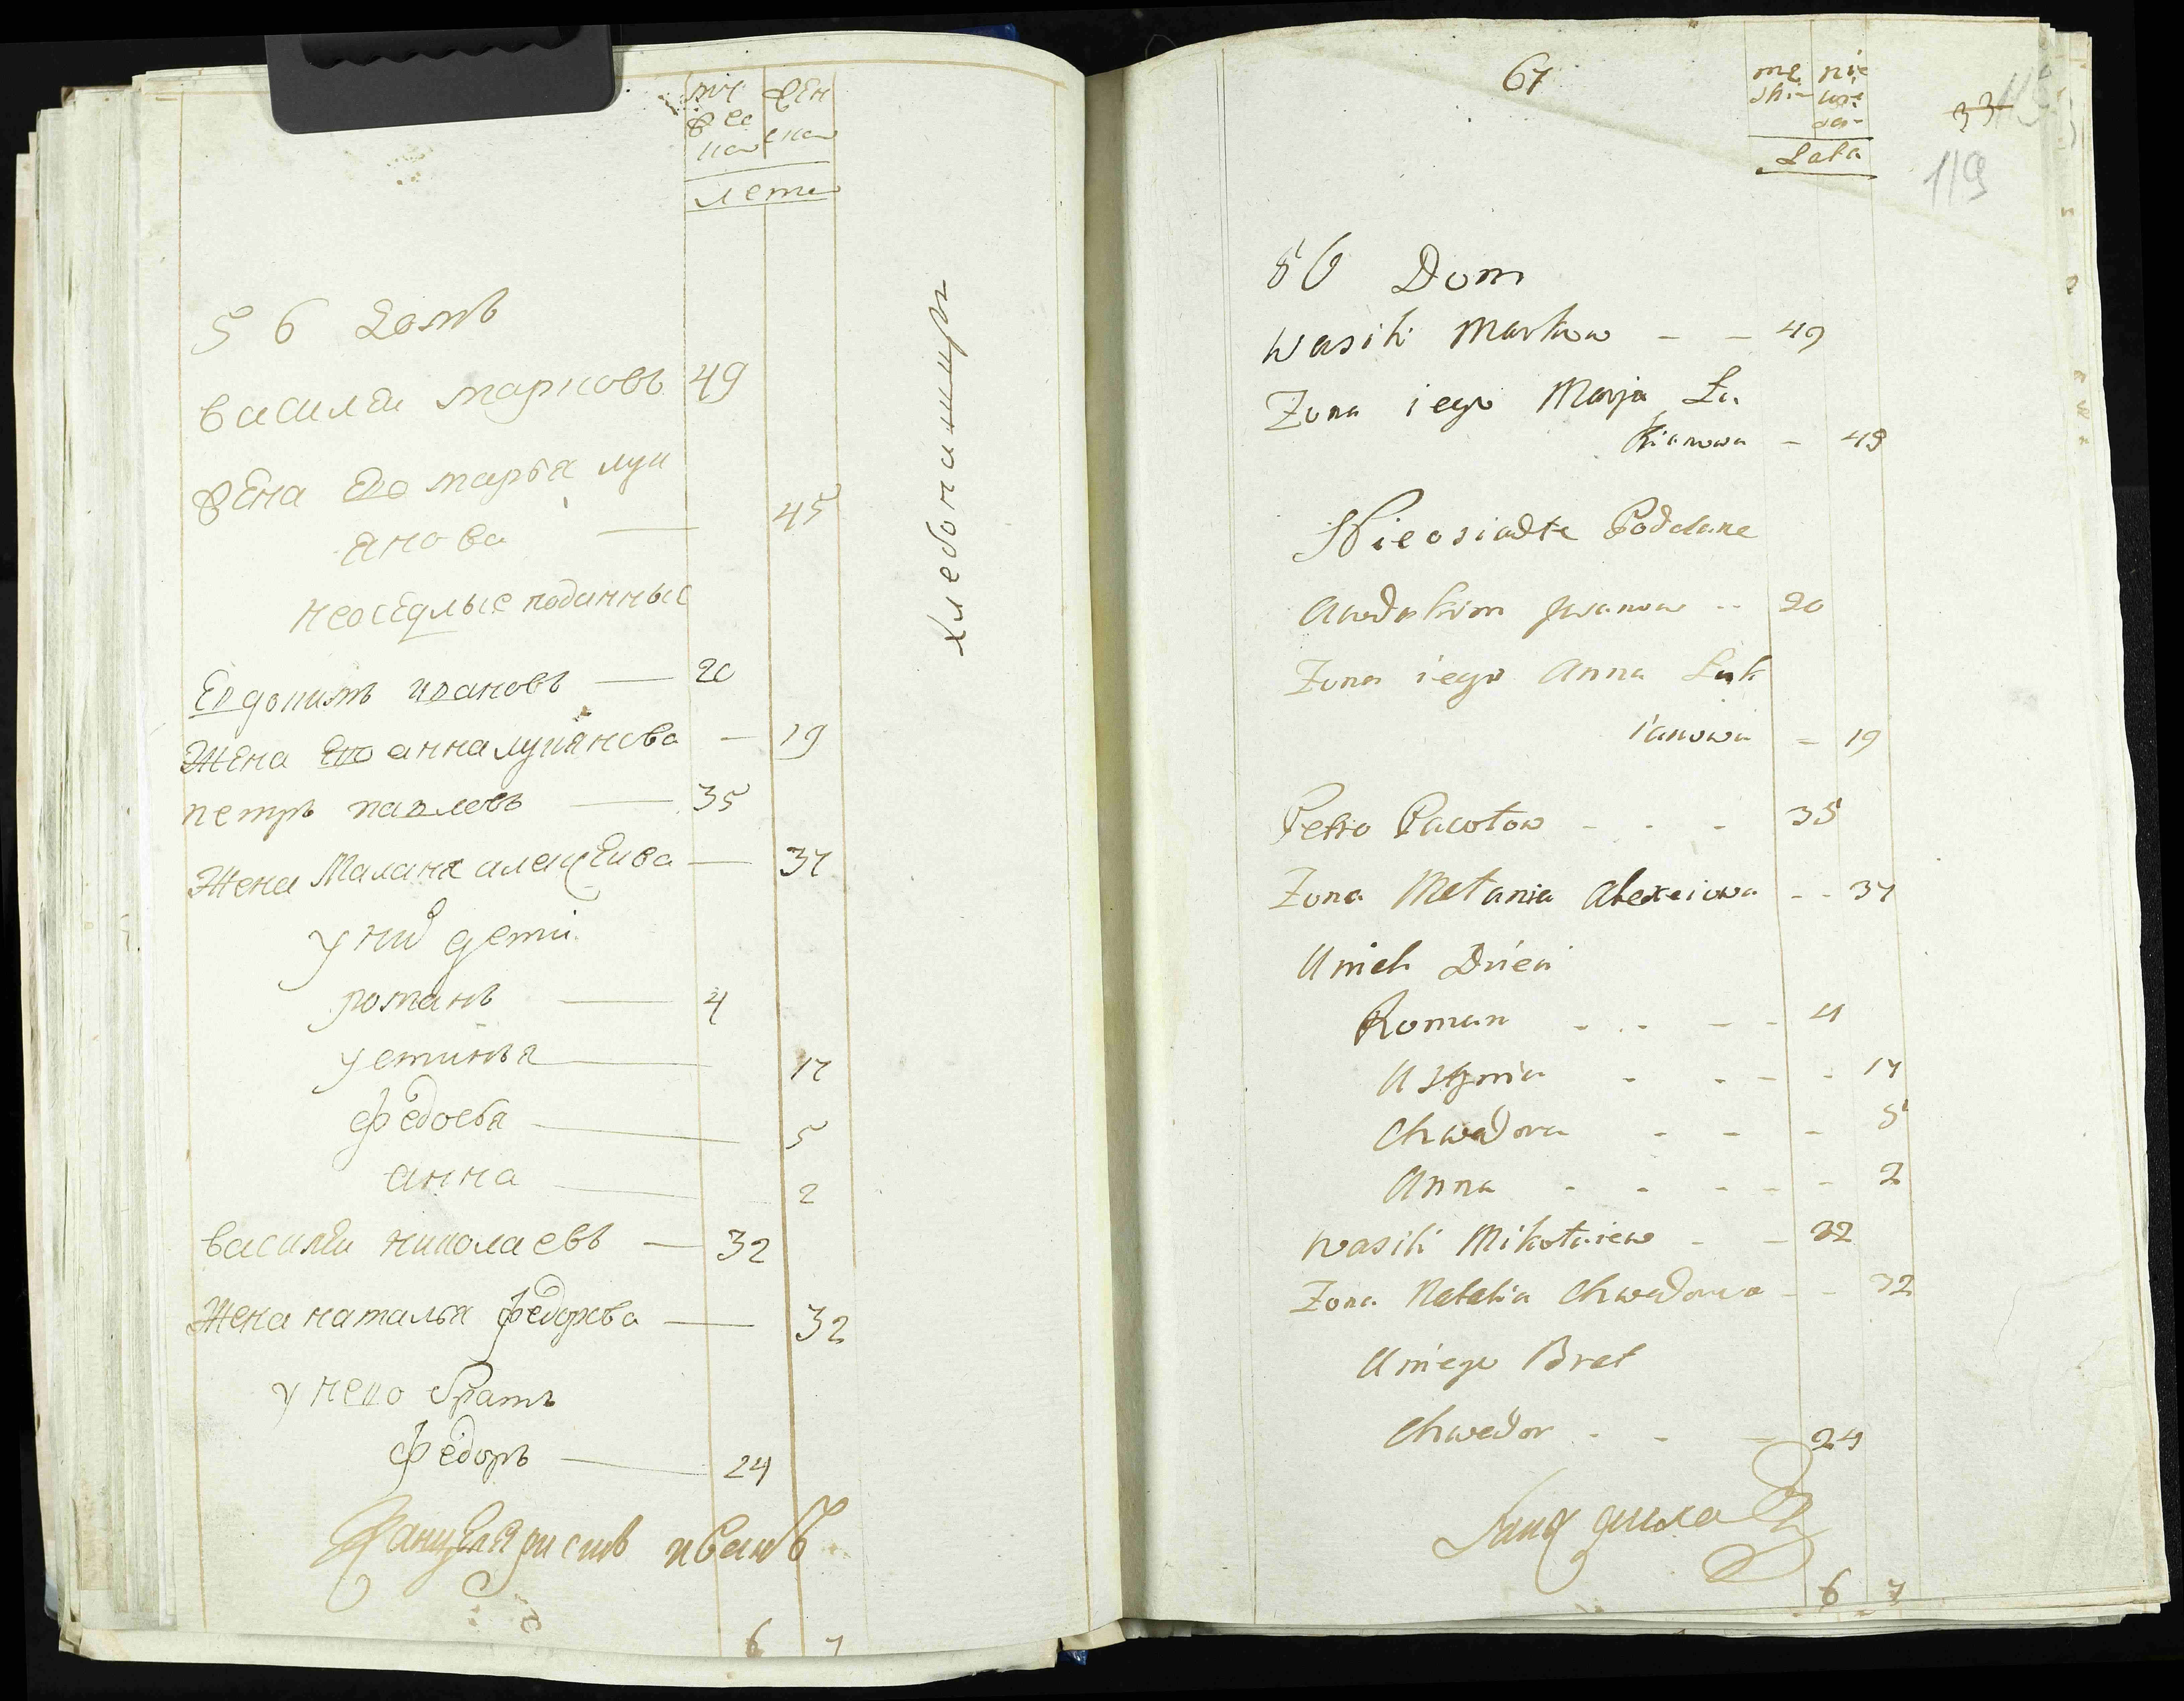 муж женс
ска ска
лета
5 6 Домъ
василѣи марковъ 49
жена его марья луки
янова — 45
неосѣдлые поданные
Евдокимъ ивановъ — 20
Жена Его анна лукянова — 19
петръ павловъ — 35
Жена Маланя алексѣива — 37
у них дети
романъ — 4
устинья — 17
федосья — 5
анна — 2
василѣи николаевъ — 32
Жена наталья федорова — 32
у него братъ
федоръ — 24
Канцеляристъ иванъ
6 7
хлебопашцы
67
mę nie
skie wie
scie
Lata
33
119
56 Dom
Wasili Markow - - 49
Zona iego Marja Łu
kianowa - 45
Nieosiadłe Poddane
Awdokim Jwanow -- 20
Zona iego Anna Łuk
ianowa = 19
Petro Pawłow - - - 35
Zona Mełania Alexeiowa - - 37
U nich Dzieci
Roman - - - - 4
Ustynia - - - - 17
Chwedora - - - 5
Anna - - - - - 2
Wasili Mikołaiew - - 32
Zona Natalia Chwedorowa - - 32
U niego Brat
Chwedor - - - 24
6 7